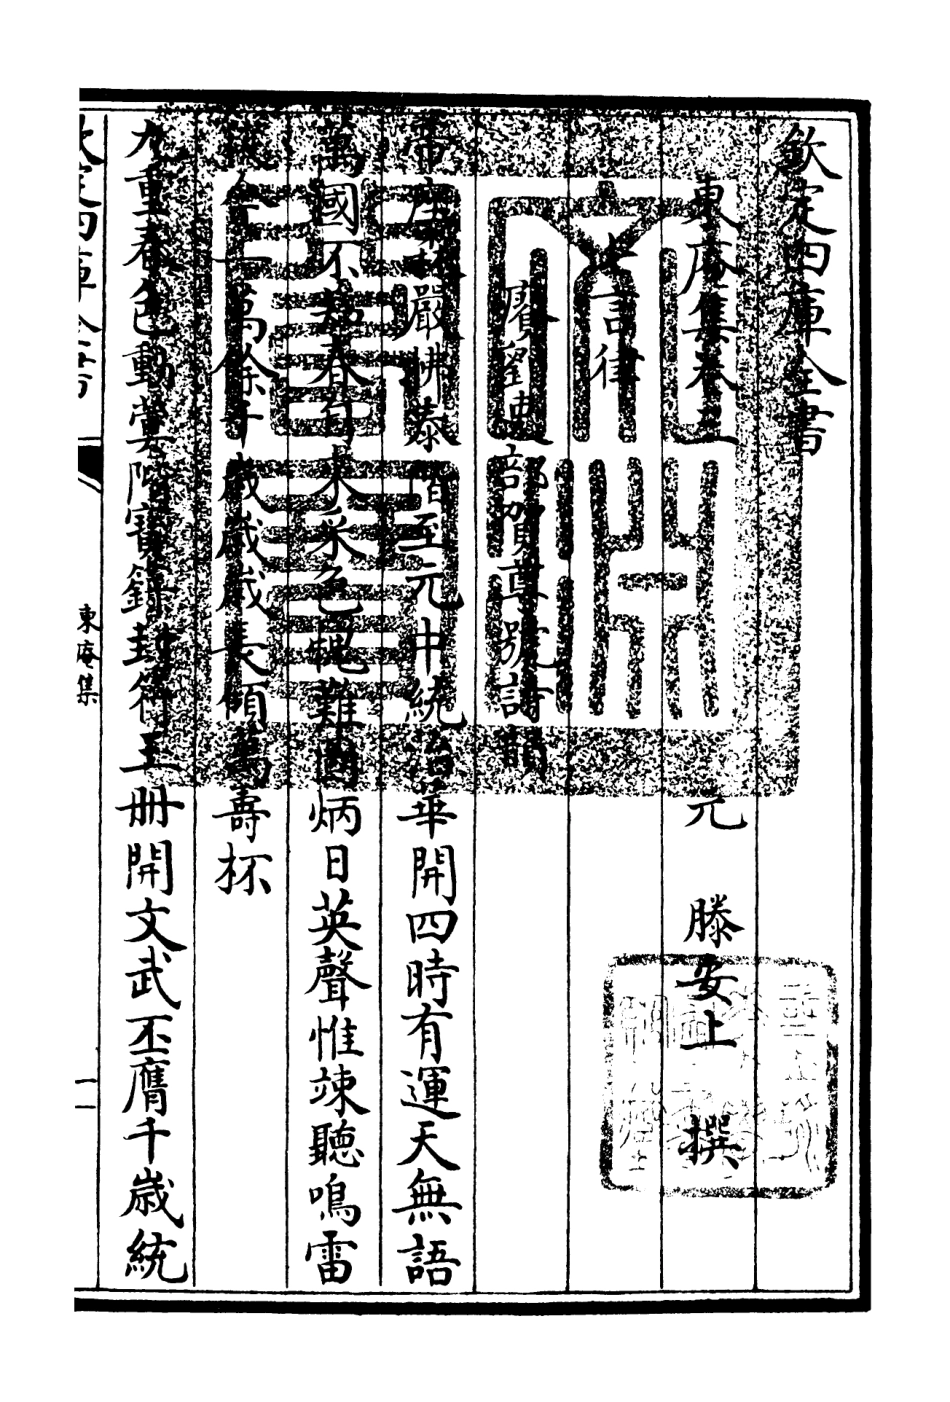 欽定四庫全書
東庵集卷三
元 滕安上 撰
七言律
賡劉吏部賀尊號詩韻
帝座森嚴拂泰階至元中統治華開四時有運天無語
萬國不知春自來采色媿難圖炳日英聲惟竦聽鳴雷
從今一萬餘千歲歲歲長傾萬壽杯
九重春色動蓂階寶籙封符玉册開文武丕膺千歲統
欽定四庫全書
東庵集
一